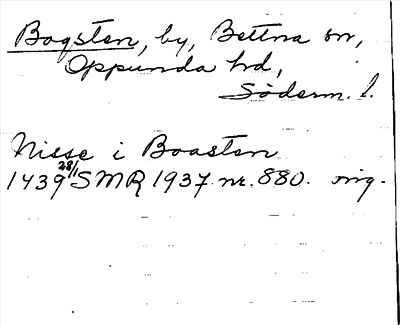 Bogsten, by, Bettna sn,
Oppunda hd,
Söderm. l.
Nisse i Boasten
1439 28/1 SMR 1937 nr. 880. orig.